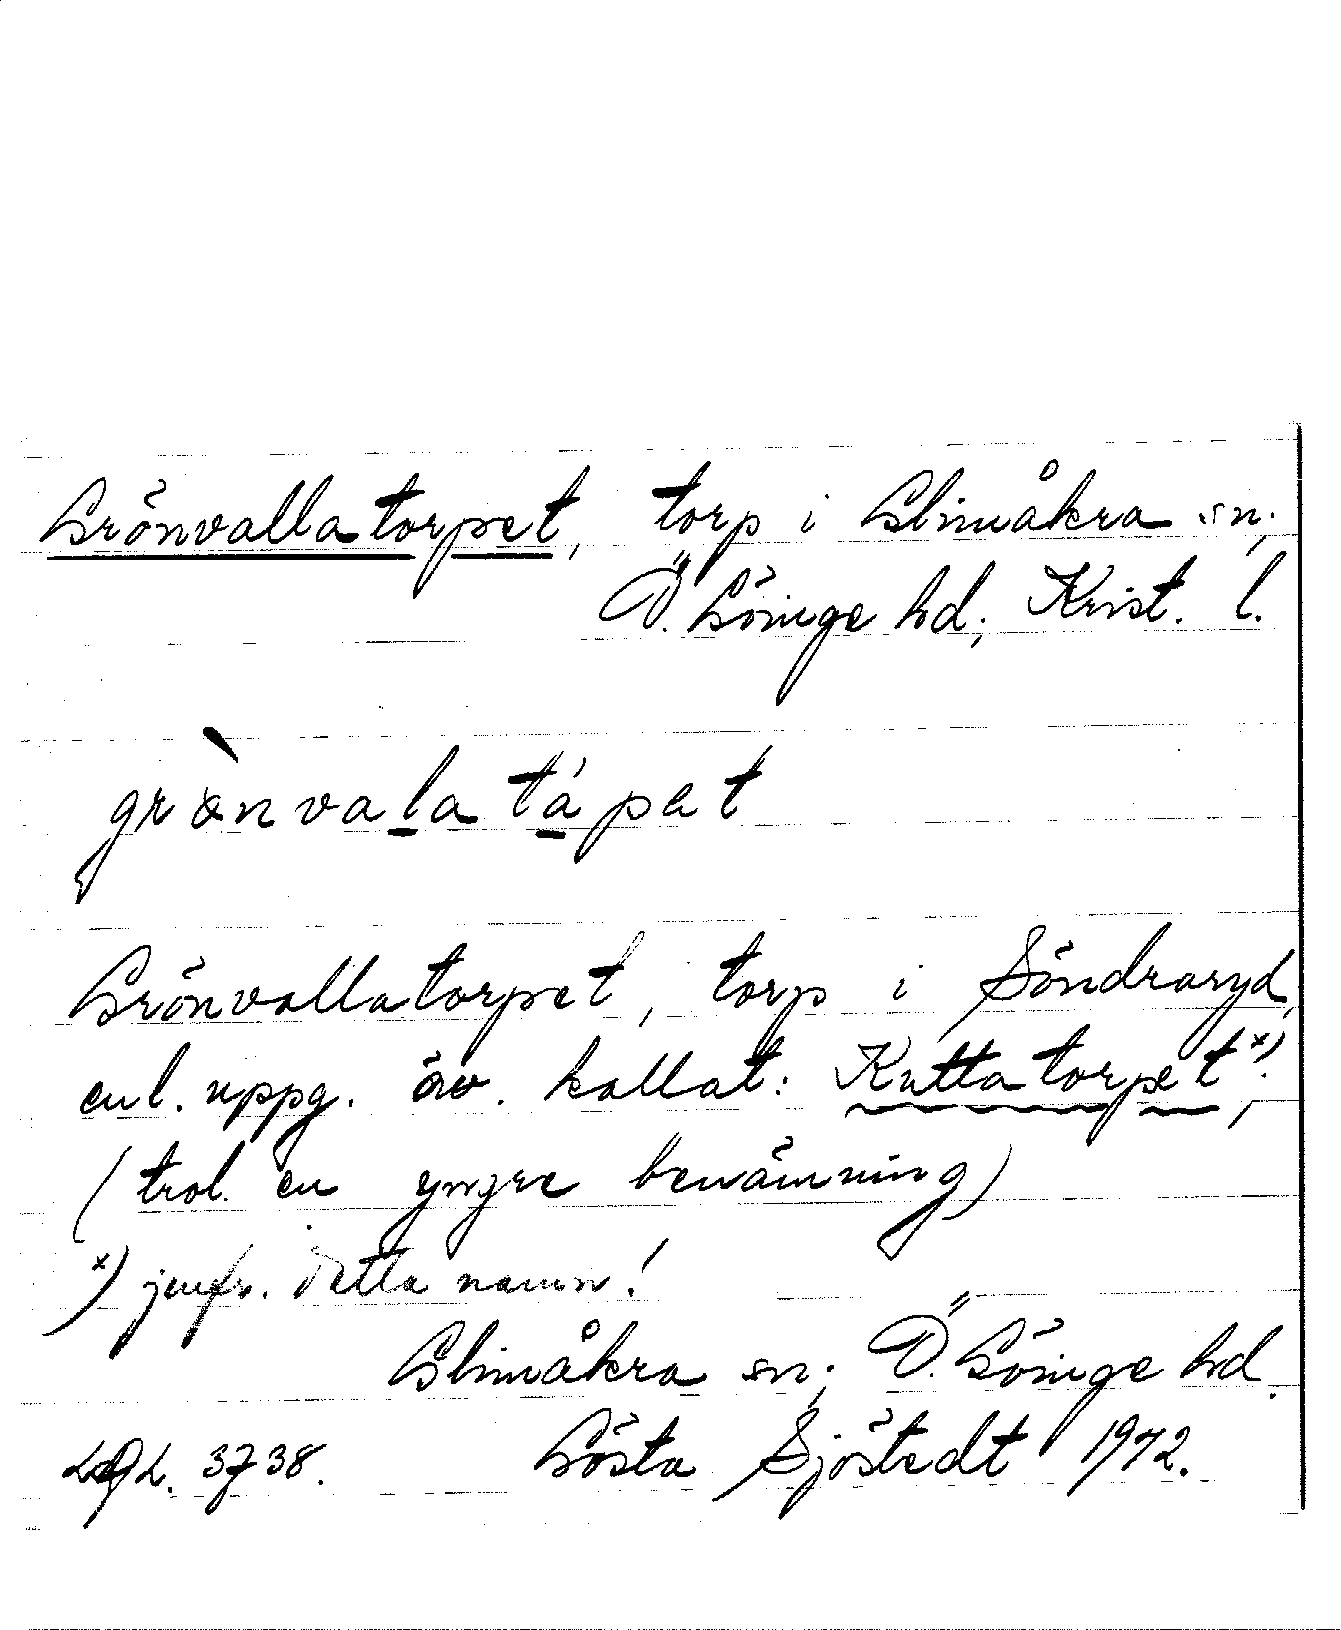 Grönvallatorpet, torp i Glimåkra sn;
Ö. Göinge hd; Krist. l.
grònvalatápet
Grönvallatorpet, torp i Söndraryd,
enl. uppg. äv. kallat: Kuttatorpet x),
(trol. en yngre benämning)
x) jmfr. detta namn!
Glimåkra sn; Ö. Göinge hd.
3738. Gösta Sjöstedt 1972.